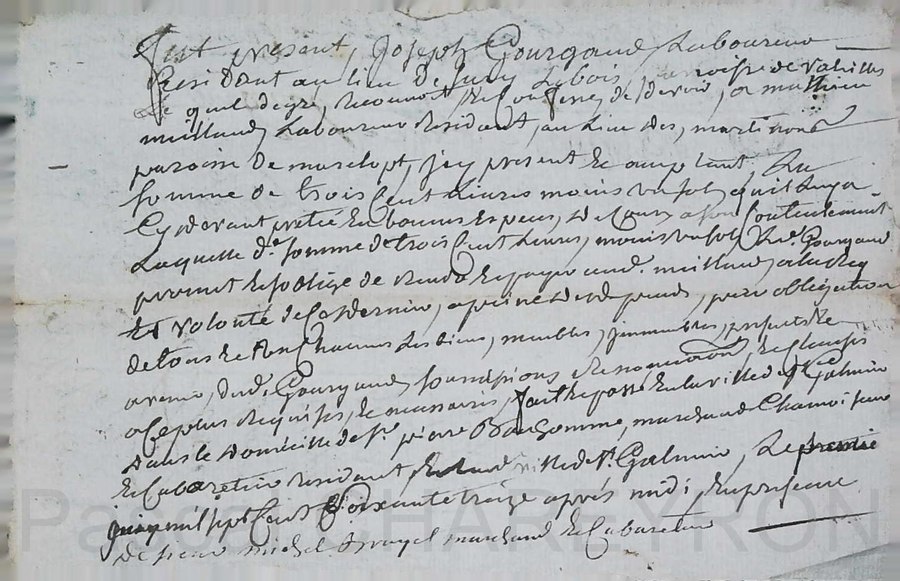 Fut présent, Joseph Gourgaud Laboureur
Résident au lieu de Jurey Lebois, parroisse de
Lequel degré, Reconnoit et Confesse, de devoir, a mathieu
meilland, Laboureur Résidant, au Lieu des, martinond
paroisse de marclopt, jcy present et acceptant, La
Somme de trois Cent Livres moins un sol, quil luy a
Cy devant pretté En bonnes Especes, de Cours a son Contentement
Laquelle de. somme de trois Cent Livres, moins un sol Led. Gourgaud
promet et soblige de rendre et payer aud. meilland, a la req
Et volonté de Ce dernier, a peine de tous depends, par obligation
de tous Et Un Chacuns Les biens, meubles, jmmeubles, presents Et
avenir, dud. Gourgaud, soumissions Renonciations, Et Clauses
a Ce plus Requises, Et necessaires, fait Et passé En la ville de St. Galmier
dans le domicille de Sr. pierre, marchand Chamoiseur
Et Cabaretier Résidant En lad. ville de St. Galmier, Le
mil sept Cent Soixante treize après midi, En presence
de sieur Michel marchand Et Cabaretier
Pascal CHAREYRON